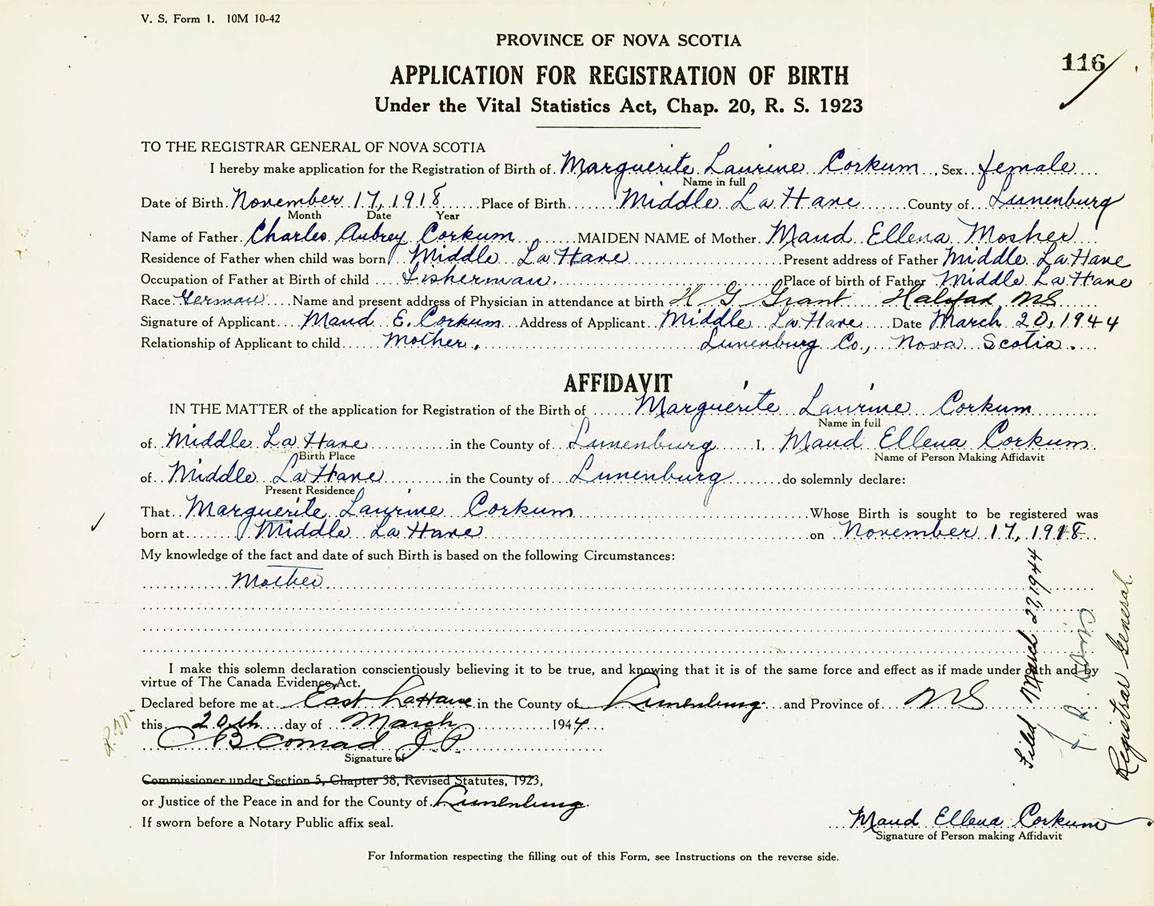 V. S. Form 1. 10M 10-42
PROVINCE OF NOVA SCOTIA
116
APPLICATION FOR REGISTRATION OF BIRTH
Under the Vital Statistics Act, Chap. 20, R. S. 1923
TO THE REGISTRAR GENERAL OF NOVA SCOTIA
I hereby make application for the Registration of Birth of Marguerite Laurine Corkum, Sex female
Name in full
Date of Birth November 17, 1918 Place of Birth Middle La Have County of Lunenburg
Month Date Year
Name of Father Charles Aubrey Corkum MAIDEN NAME of Mother Maud Ellena Mosher
Residence of Father when child was born Middle La Have Present address of Father Middle La Have
Occupation of Father at Birth of child Fisherman. Place of birth of Father Middle La Have
Race German Name and present address of Physician in attendance at birth H G Grant Halifax NS
Signature of Applicant Maud E. Corkum Address of Applicant Middle La Have Date March 20, 1944
Relationship of Applicant to child Mother. Lunenburg Co., Nova Scotia.
AFFIDAVIT
IN THE MATTER of the application for Registration of the Birth of Marguerite Laurine Corkum
Name in full
of Middle La Have in the County of Lunenburg I, Maud Ellena Corkum
Birth Place Name of Person Making Affidavit
of Middle La Have in the County of Lunenburg do solemnly declare:
Present Residence
That Marguerite Laurine Corkum Whose Birth is sought to be registered was
born at Middle La Have on November 17, 1918
My knowledge of the fact and date of such Birth is based on the following Circumstances:
Mother
I make this solemn declaration conscientiously believing it to be true, and knowing that it is of the same force and effect as if made under oath and by
virtue of The Canada Evidence Act.
Declared before me at East LaHave in the County of Lunenburg and Province of NS
this 20th day of March 1944
C B Conrad J P
Signature of
Commissioner under Section 5, Chapter 38, Revised Statutes, 1923,
or Justice of the Peace in and for the County of Lunenburg.
If sworn before a Notary Public affix seal.
Maud Ellena Corkum
Signature of Person making Affidavit
For Information respecting the filling out of this Form, see Instructions on the reverse side.
Filed March 27, 1944
Registrar General.